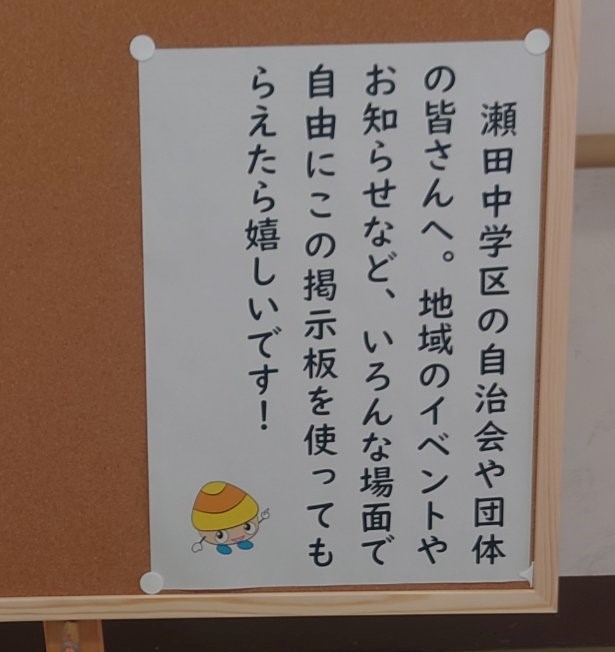 瀬田中学区の自治会や団体
の皆さんへ。地域のイベントや
お知らせなど、いろんな場面で
自由にこの掲示板を使っても
らえたら嬉しいです！